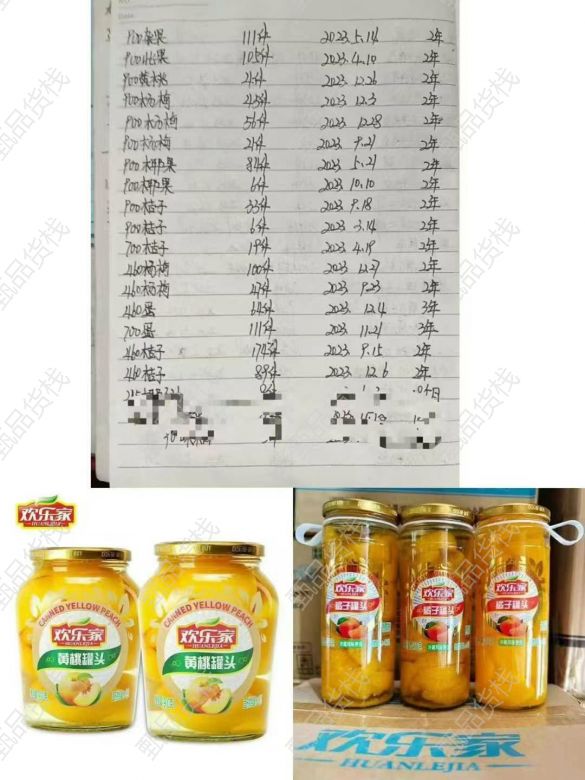 900杂果 111件 2023.5.14 2年
900杂果 105件 2023.4.10 2年
900黄桃 2023.12.26 2年
900杨梅 2023.12.3 2年
900杨梅 56件 2023.12.28 2年
900杨梅 21件 2023.9.21 2年
900椰果 2023.5.21 2年
900椰果 6件 2023.10.10 2年
900桔子 33件 2023.9.18 2年
900桔子 6件 2023.3.14 2年
700桔子 19件 2023.4.19 2年
460杨梅 100件 2023.12.27 2年
460杨梅 47件 2023.9.23 2年
460 64件 2023.12.4 3年
700 111件 2023.11.21 3年
460桔子 174件 2023.9.15 2年
460桔子 89件 2023.12.6 2年
欢乐家
HUANLEJIA
CANNED YELLOW PEACH
欢乐家
HUANLEJIA
黄桃罐头
CANNED YELLOW PEACH
欢乐家
HUANLEJIA
黄桃罐头
欢乐家
橘子罐头
欢乐家
橘子罐头
欢乐家
橘子罐头
欢乐家
HUANLEJIA
甄品货栈